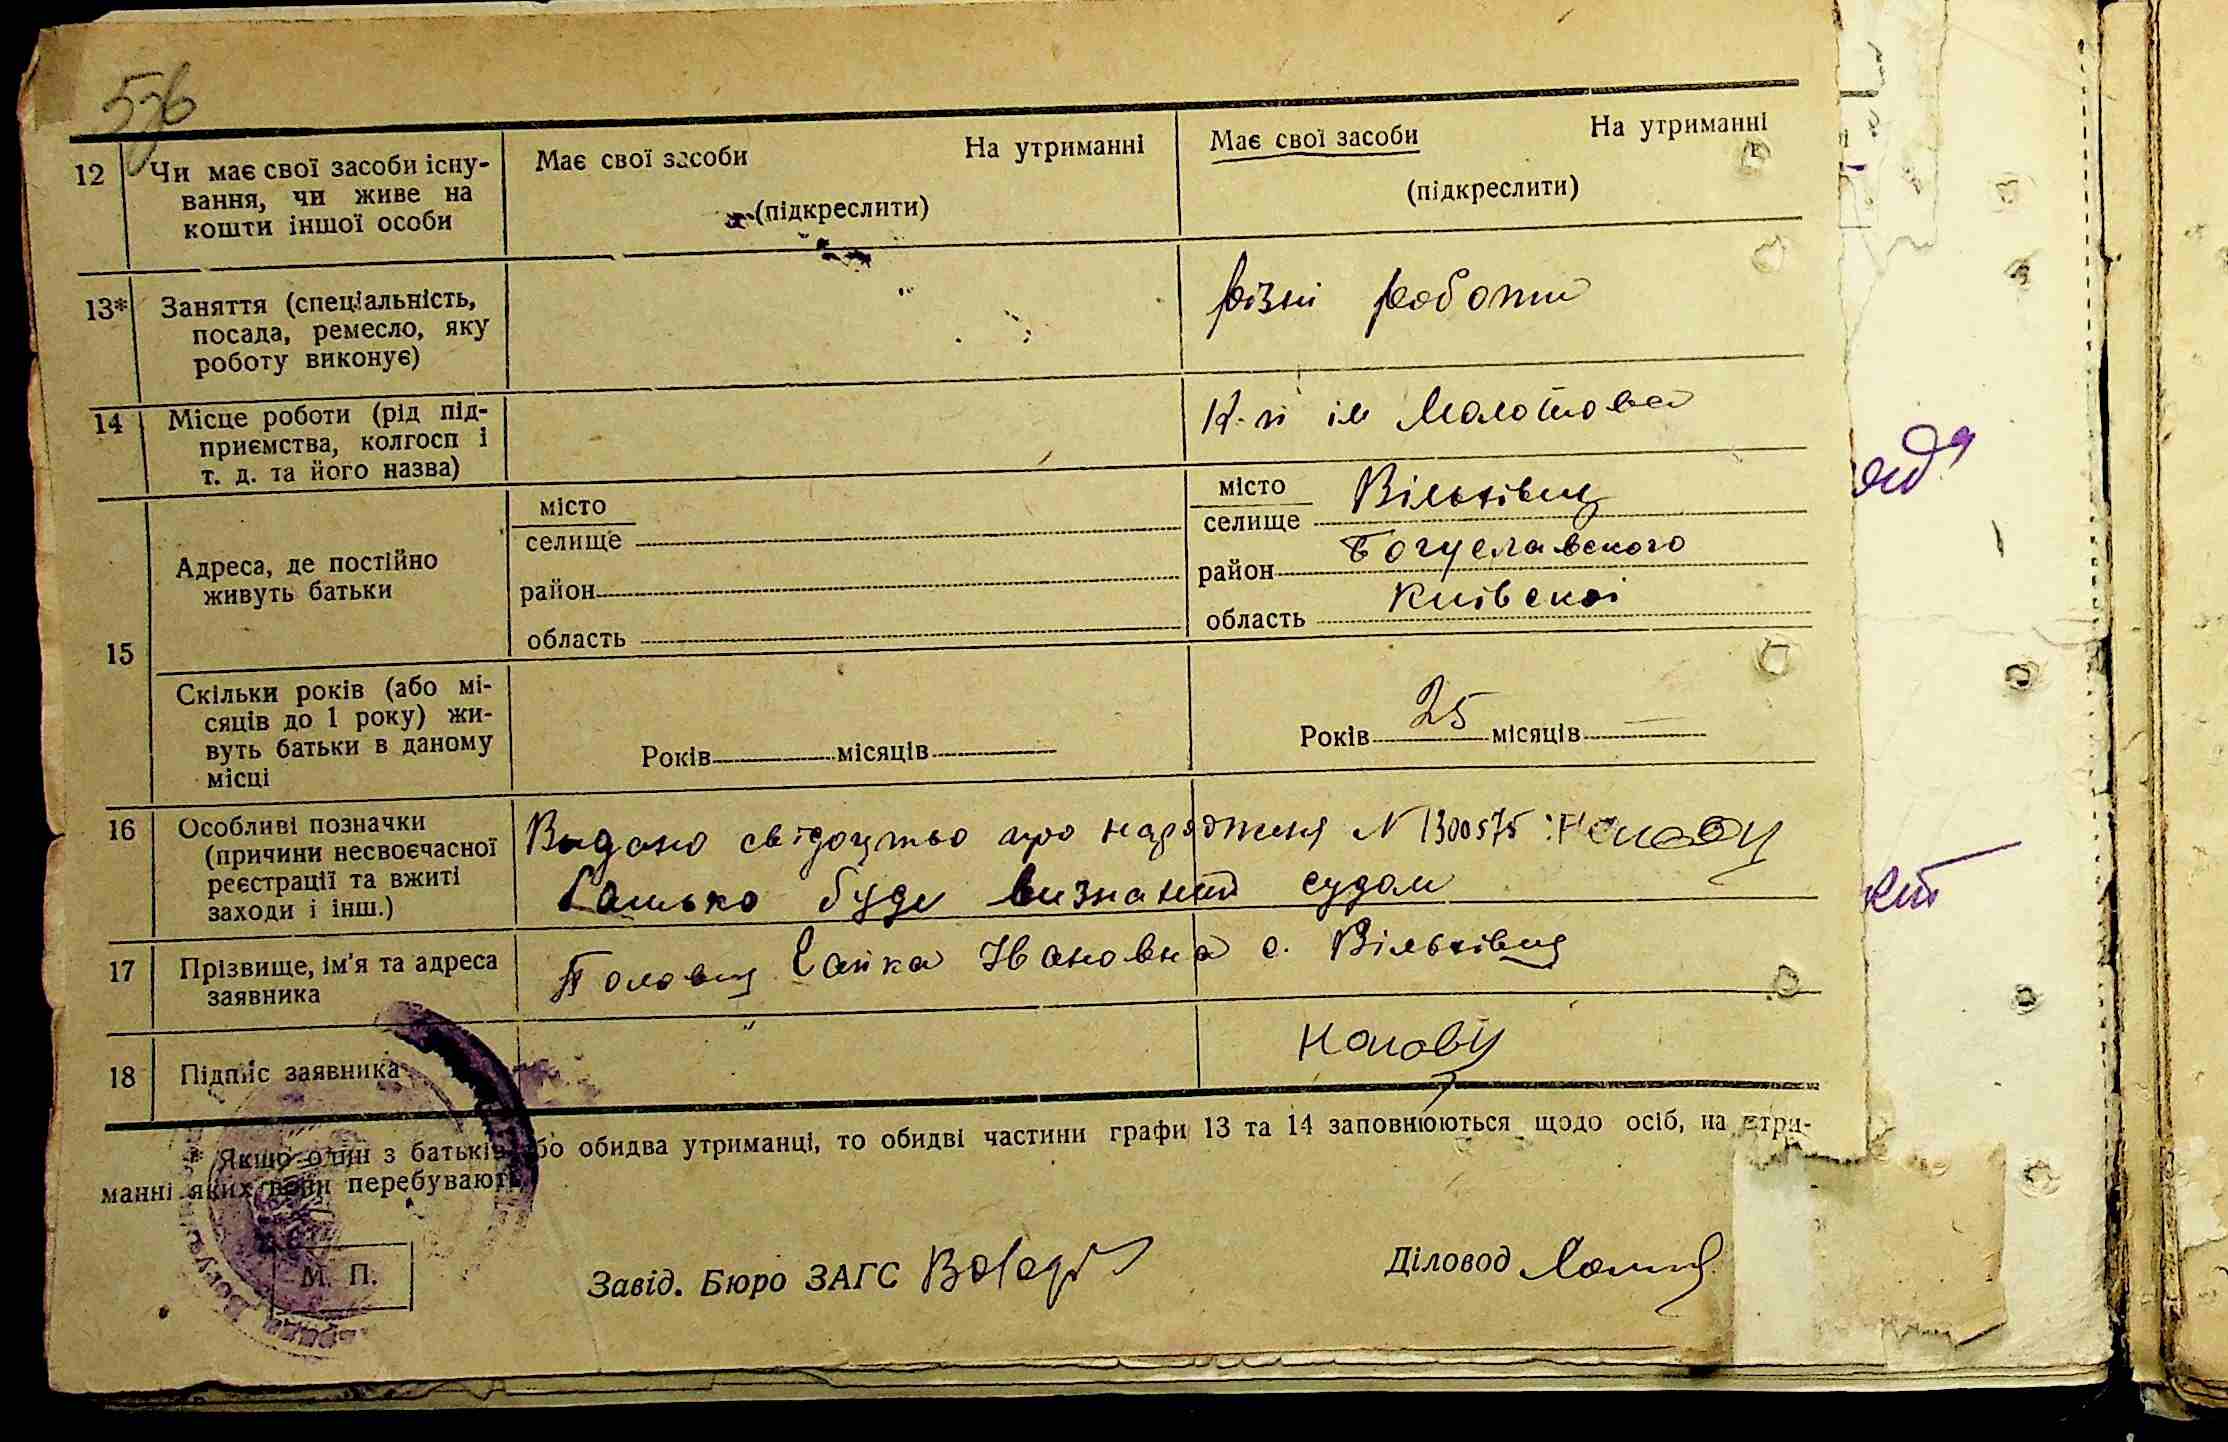 12 Чи має свої засоби існу-
вання, чи живе на
кошти іншої особи
Має свої засоби На утриманні
(підкреслити)
Має свої засоби На утриманні
(підкреслити)
13* Заняття (спеціальність,
посада, ремесло, яку
роботу виконує)
різні роботи
14 Місце роботи (рід під-
приємства, колгосп і
т. д. та його назва)
К-п ім Молотова
15 Адреса, де постійно
живуть батьки
місто
селище
район
область
місто
селище Вільхівець
район Богуславского
область Київскої
Скільки років (або мі-
сяців до 1 року) жи-
вуть батьки в даному
місці
Років місяців
Років 25 місяців —
16 Особливі позначки
(причини несвоєчасної
реєстрації та вжиті
заходи і інш.)
Видано свідоцтво про народженя N 1300575
батько буде визнаний судом
17 Прізвище, ім'я та адреса
заявника
Ивановна с. Вільхівець
18 Підпис заявника
Якщо один з батьків або обидва утриманці, то обидві частини графи 13 та 14 заповнюються щодо осіб, на утри-
манні яких вони перебувають.
М. П.
Завід. Бюро ЗАГС
Діловод